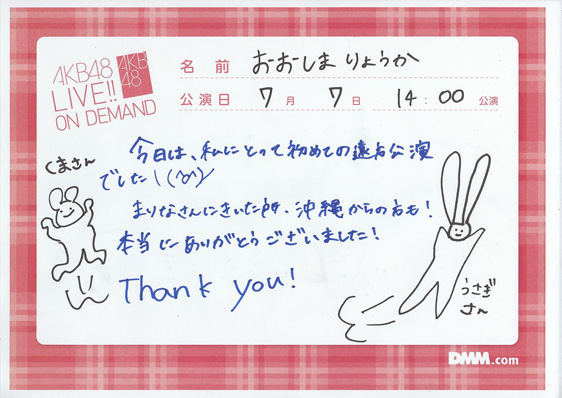 AKB48
LIVE!!
ON DEMAND
AKB
48
名 前 おおしまりょうか
公演日 7月 7日 14:00 公演
今日は、私にとって初めての遠方公演
でした\(^o^)/
まりなさんにきいた所、沖縄からの方も!
本当にありがとうございました!
Thank you!
くまさん
うさぎ
さん
DMM.com